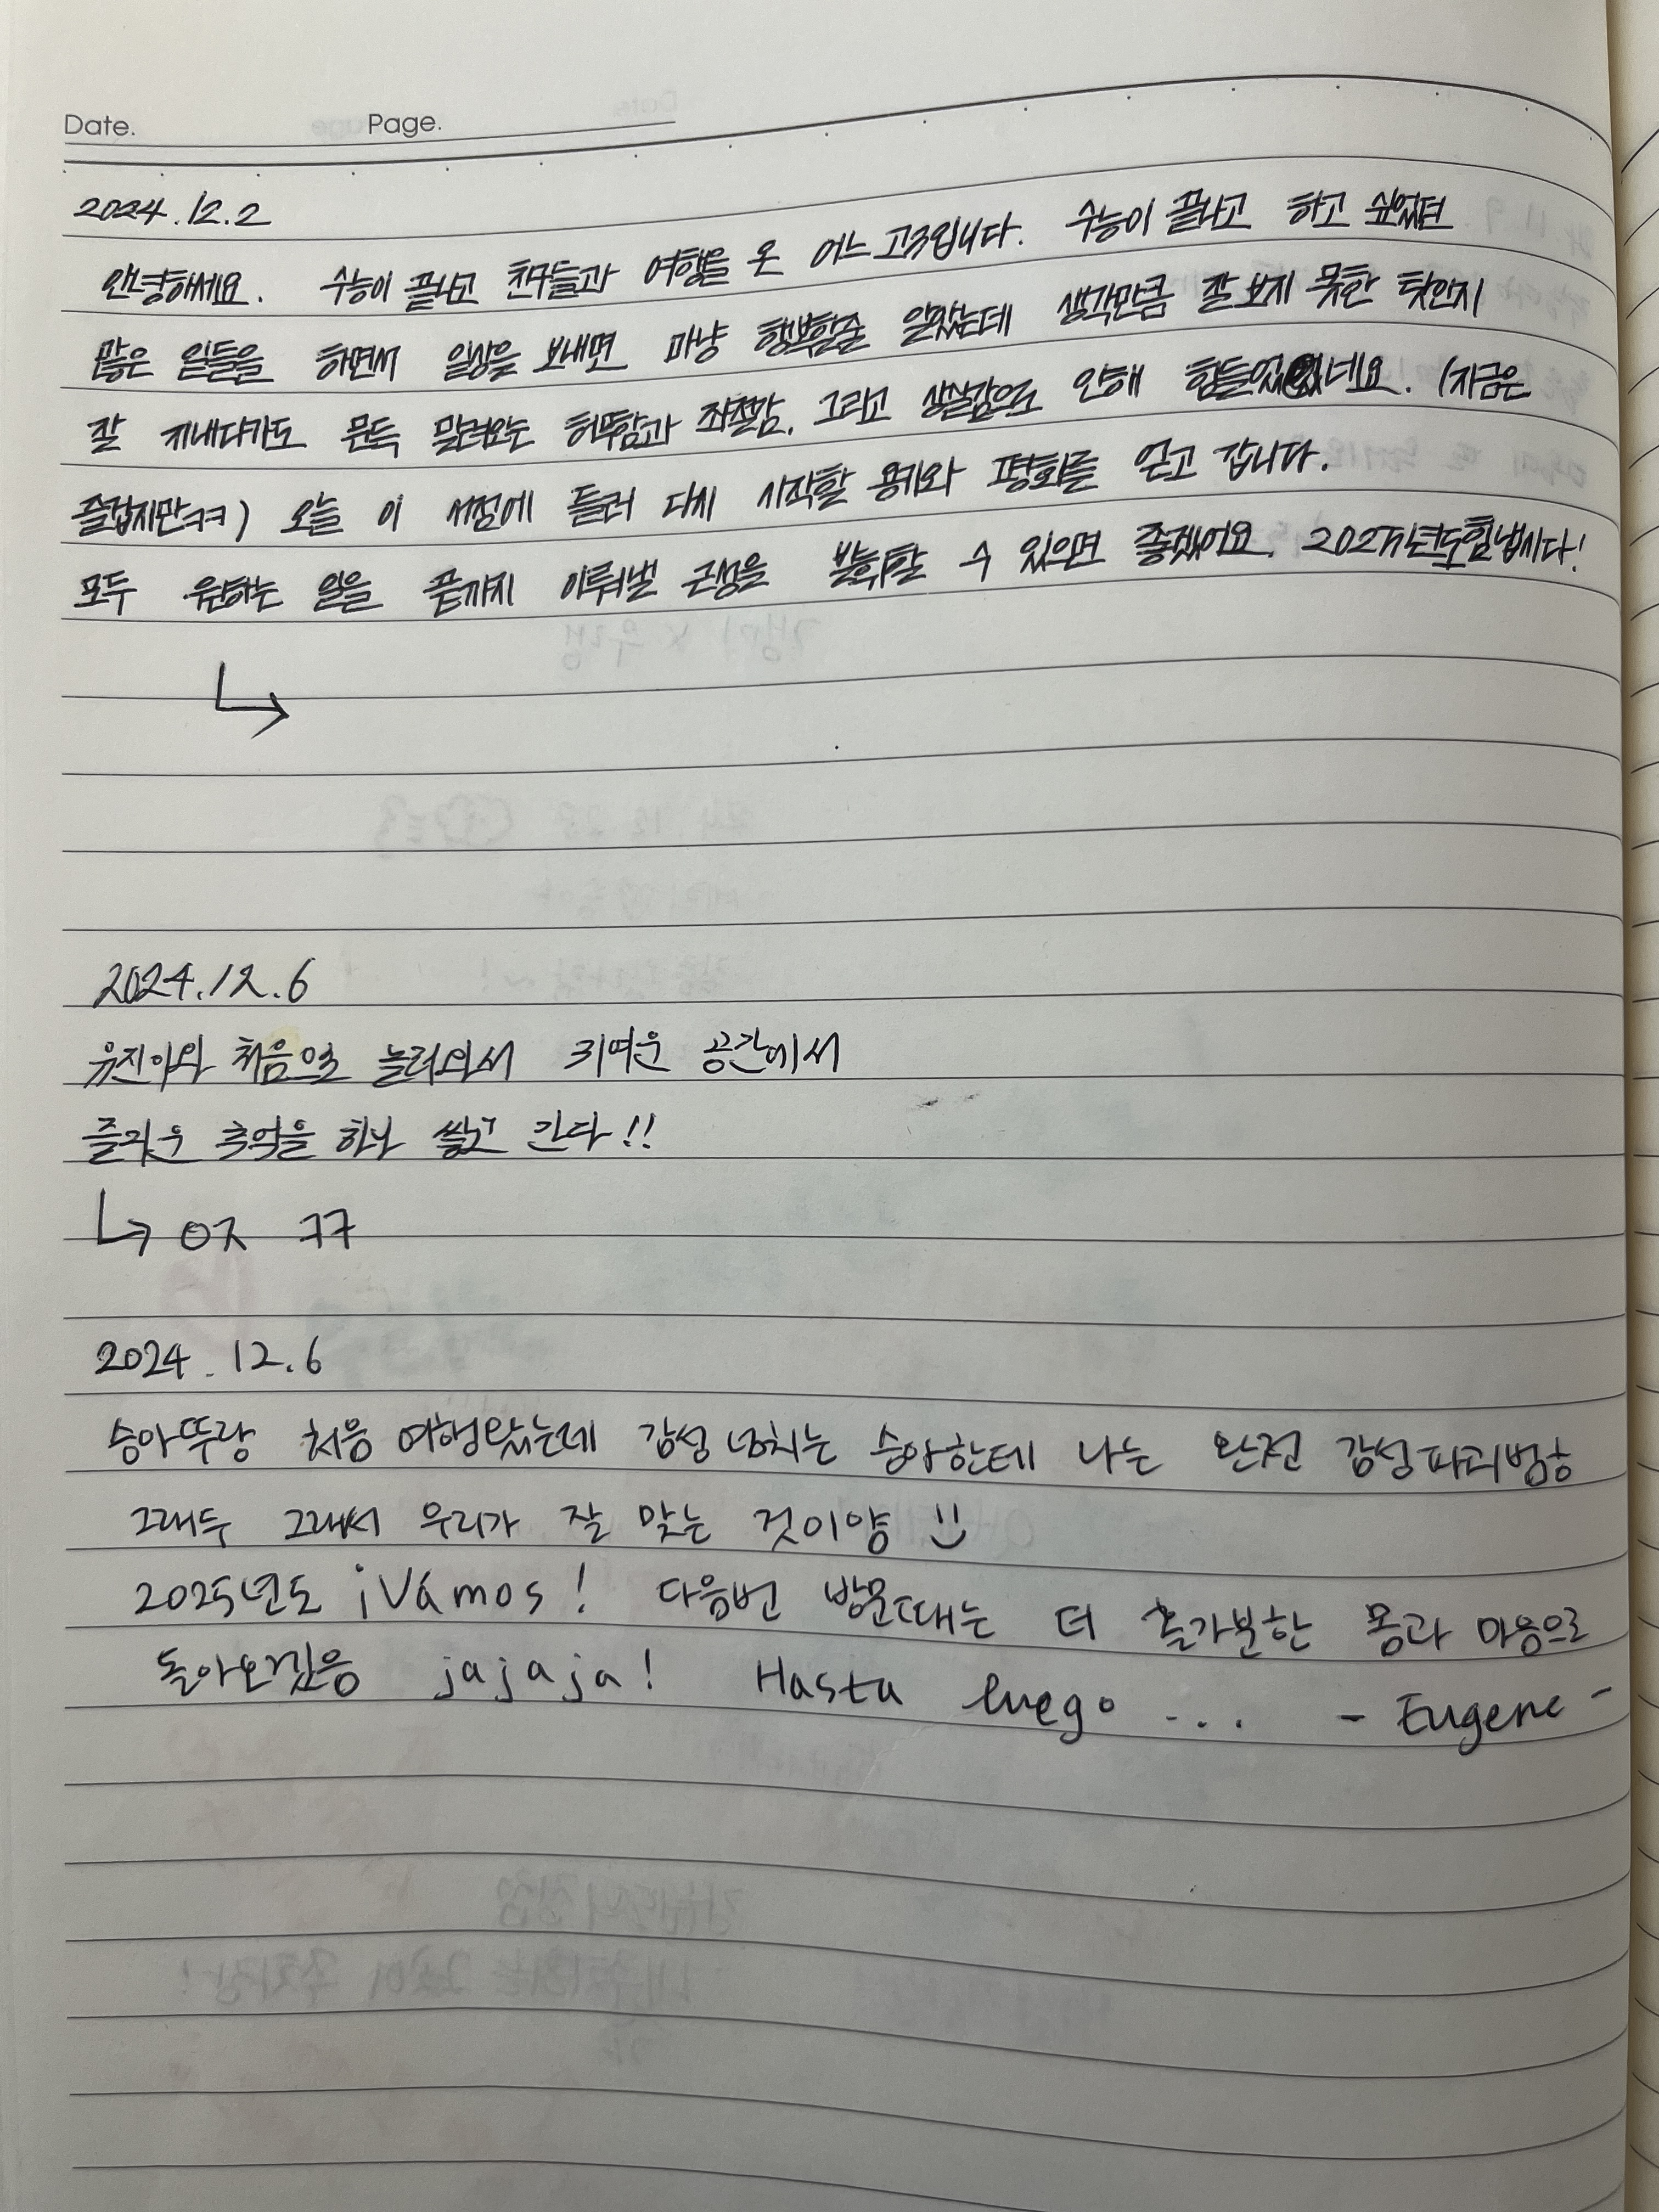 Date. Page.
2024.12.2
안녕하세요. 수능이 끝나고 친구들과 여행을 온 어느 고3입니다. 수능이 끝나고 하고 싶었던
많은 일들을 하면서 일상을 보내면 마냥 행복할줄 알았는데 생각만큼 잘 보지 못한 탓인지
잘 지내다가도 문득 밀려오는 허무함과 좌절감, 그리고 상실감으로 인해 힘들었네요. (지금은
즐겁지만ㅋㅋ) 오늘 이 서점에 들러 다시 시작할 용기와 평화를 얻고 갑니다.
모두 원하는 일을 끝까지 이뤄낼 근성을 발휘할 수 있으면 좋겠어요. 2025년도힘냅시다!
2024.12.6
유진이와 처음으로 놀러와서 귀여운 공간에서
즐거운 추억을 하나 쌓고 간다!!
↳ OK ㅋㅋ
2024.12.6
승아뚜랑 처음 여행왔는데 감성 넘치는 승아한테 나는 완전 감성파괴범ㅎ
그래두 그래서 우리가 잘 맞는 것이양
2025년도 ¡Vámos! 다음번 방문때는 더 홀가분한 몸과 마음으로
돌아오겠음 jajaja! Hasta luego ... - Eugene -